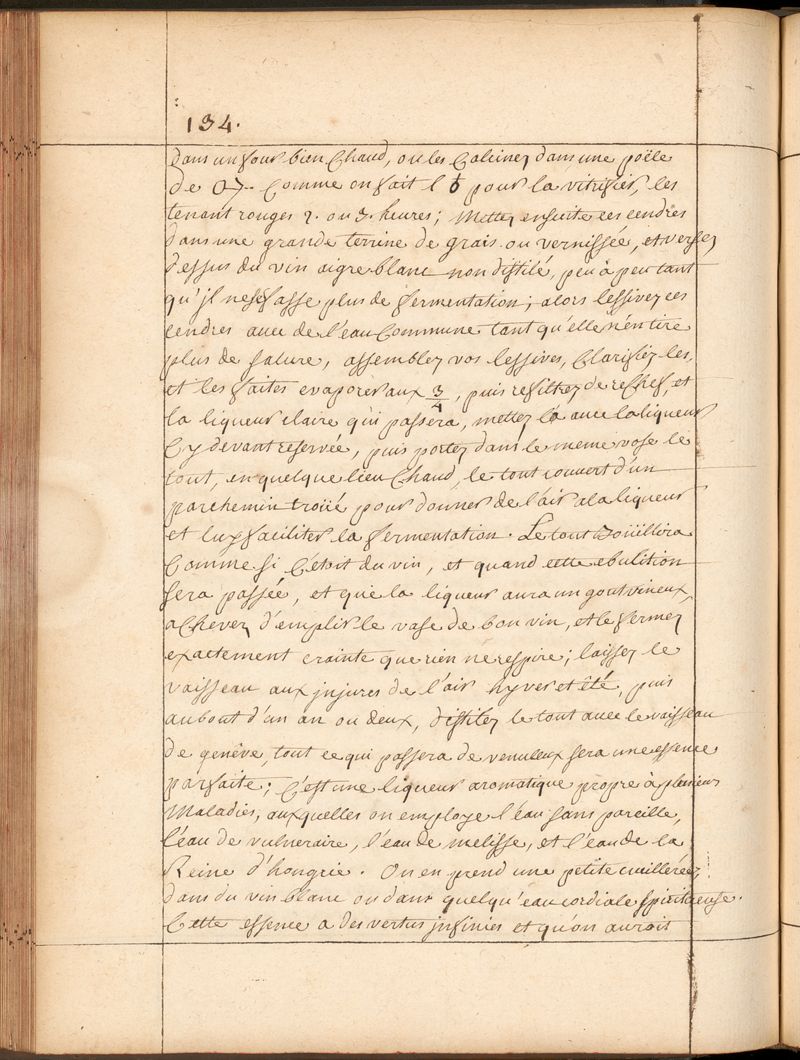 134.
dans un four bien chaud, ou les calcinez dans une poële
de comme on fait l ♄ pour la vitrifier, les
tenant rouges 2. ou 3. heures; Mettez ensuite ces cendres
dans une grande terrine de grais ou vernissée, et versez
dessus du vin aigre blanc non distilé, peu à peu tant
qu'jl ne se fasse plus de fermentation; alors lessivez ces
cendres avec de l'eau commune tant qu'elle n'en tire
plus de salure, assemblez vos lessives, clarifiéz les,
et les faites evaporer aux 3/4, puis refiltrez de rechef, et
la liqueur claire qui passera, mettez là avec la liqueur
cy devant reservée, puis portez dans le meme vase le
tout, en quelque lieu chaud, le tout couvert d'un
parchemin troüé pour donner de l'air a la liqueur
et luy faciliter la fermentation. Le tout boüillira
comme si c'etoit du vin, et quand cette ebulition
sera passée, et que la liqueur aura un gout vineux,
achevez d'emplir le vase de bon vin, et le fermez
exactement crainte que rien ne respire; laissez le
vaisseau aux jnjures de l'air hyver et êté, puis
au bout d'un an ou deux, distiléz le tout avec le vaisseau
de genêve, tout ce qui passera de venuleux sera une essence
parfaite; c'est une liqueur aromatique propre à plusieurs
Maladies, auxquelles on employe l'eau sans pareille,
l'eau de vulneraire, l'eau de melisse, et l'eau de la
Reine d'hongrie. On en prend une petite cuillerée
dans du vin blanc ou dans quelqu'eau cordiale spiritueuse.
Cette essence a des vertus jnfinies et qu'on auroit